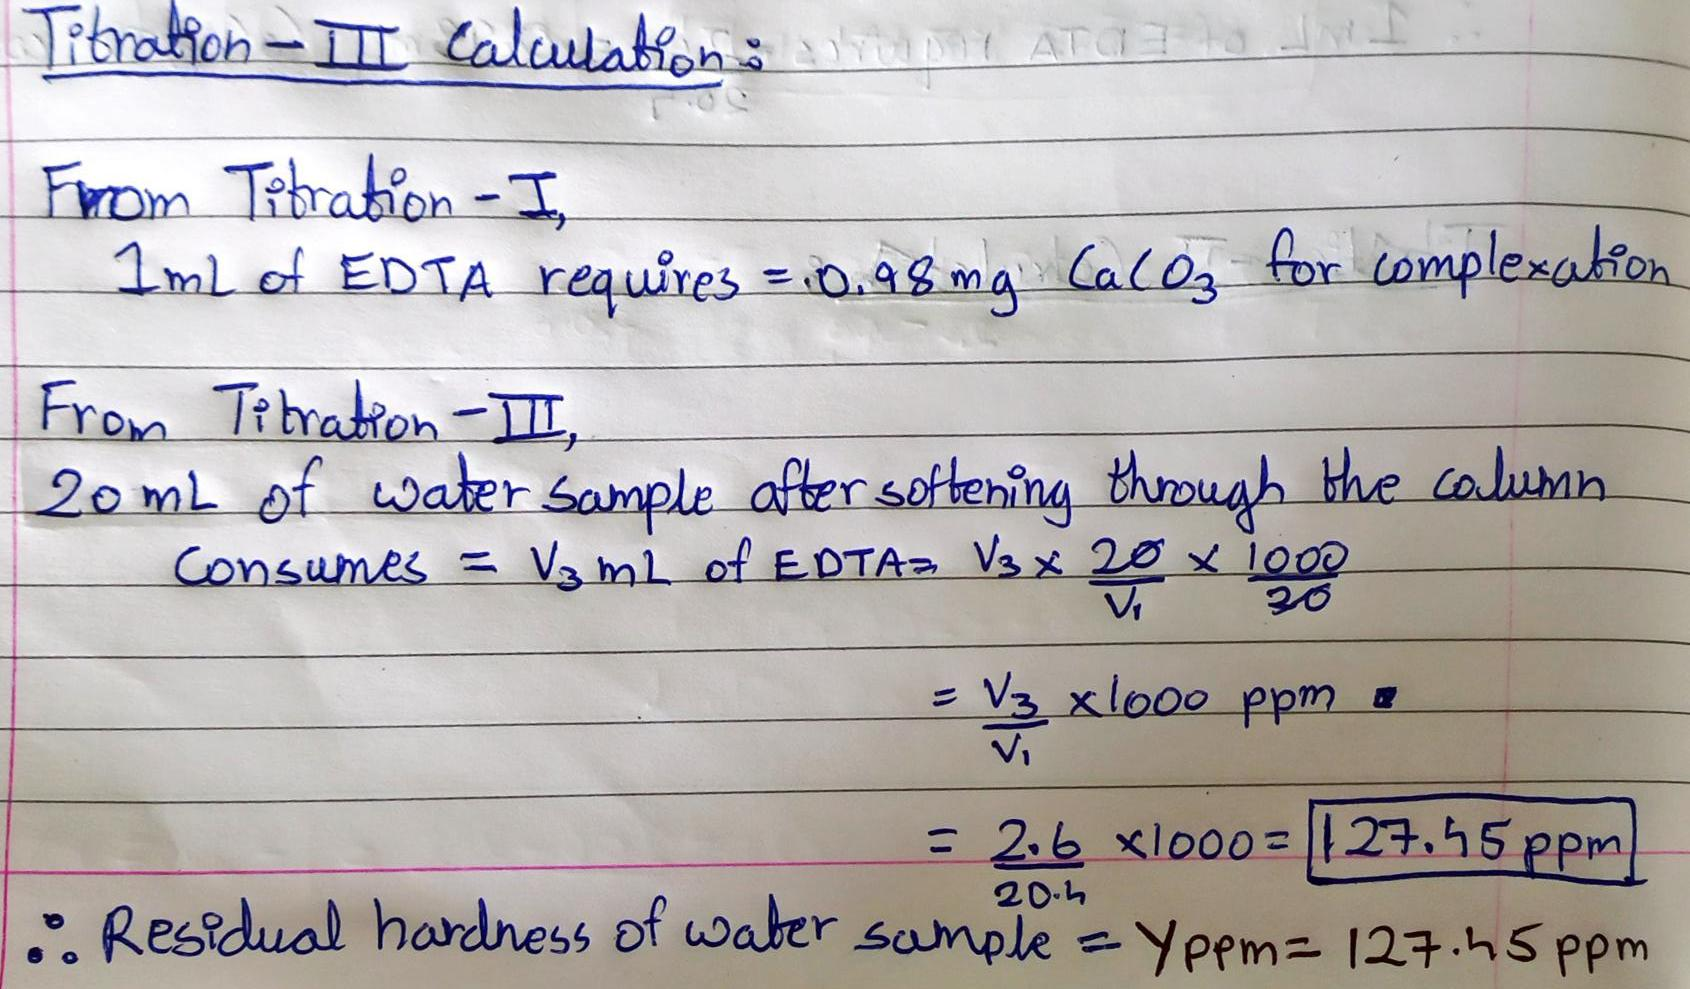 Titration - III Calculation:
From Titration - I,
1mL of EDTA requires = 0.98 mg CaCO3 for complexation
From Titration - III,
20 mL of water sample after softening through the column
Consumes = V3 mL of EDTA = V3 × 20/V1 × 1000/20
= V3/V1 × 1000 ppm
= 2.6/20.4 × 1000 = 127.45 ppm
∴ Residual hardness of water sample = Y ppm = 127.45 ppm